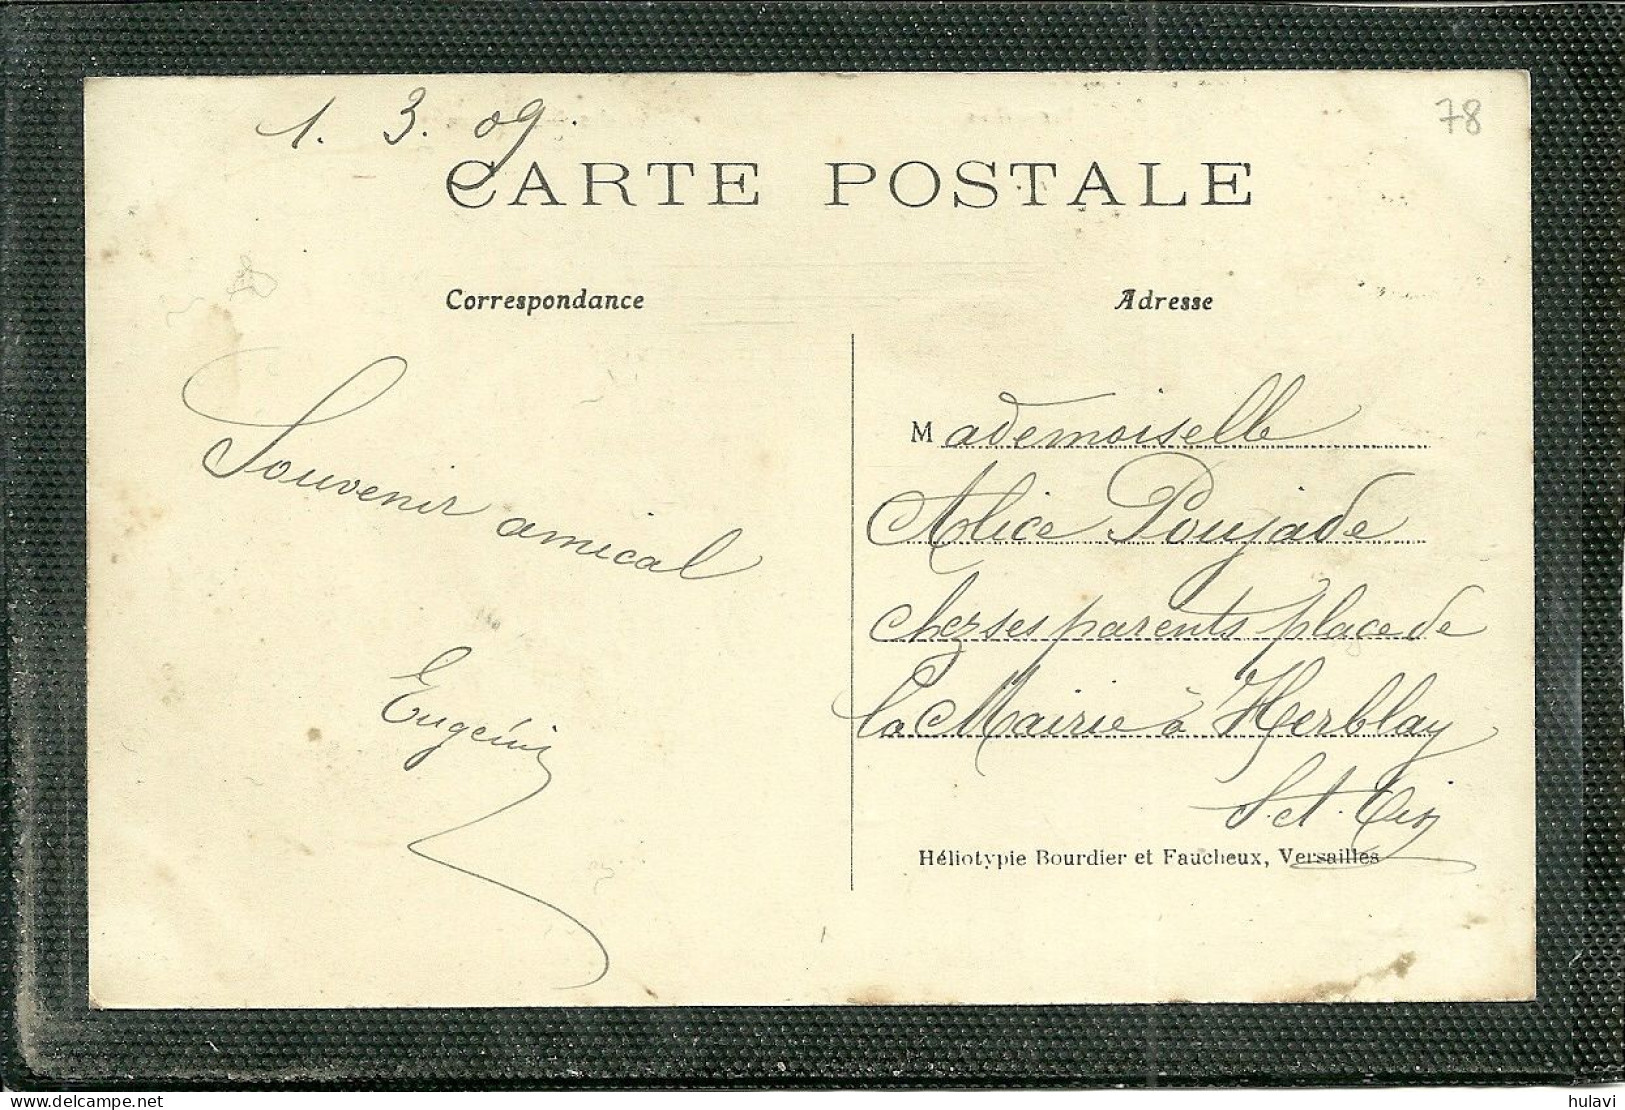 1. 3. 09.
78
CARTE POSTALE
Correspondance
Adresse
Souvenir amical
Eugénie
Mademoiselle
Alice Poujade
chez ses parents place de
la Mairie à Herblay
S. et Oise
Héliotypie Bourdier et Faucheux, Versailles
hulavi